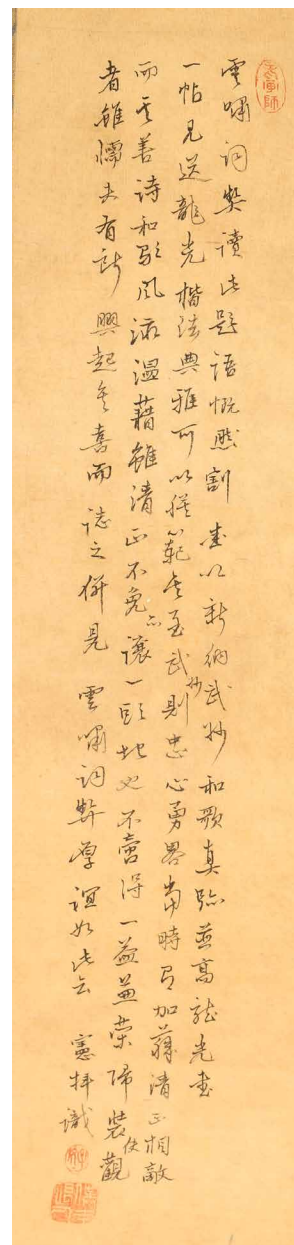 雲嘯詞契讀此題語慨然割愛以新納武抄和歌真跡並高龍光書
一帖見送龍光楷法典雅可以模範矣至武抄則忠心勇略當時與加藤清正相敵
而其善詩和歌風流溫藉雖清正不免亦讓一頭地也不啻得一益並榮歸裝使觀
者雖懦夫有所興起矣喜而誌之併見 雲嘯詞契厚誼如此云 憲拜識